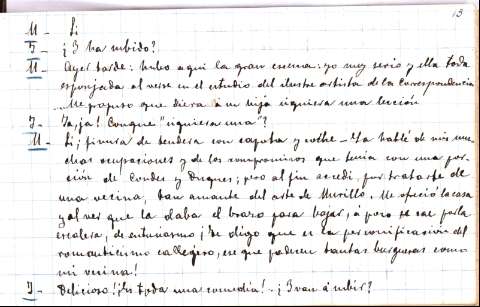 13
M- Si
J- ¿Y ha subido?
M- Ayer tarde: hubo aqui la gran escena: yo muy serio y ella toda
esponjada al verse en el estudio del ilustre artista de la Correspondencia
Me propuso que diera á su hija siquiera una leccion
J- Ja, ja! Conque "siquiera una"?
M- Si; finura de tendera con capota y coche - Ya hablé de mis mu-
chas ocupaciones y de los compromisos que tenia con una por-
ción de Condes y Duques; pero al fin accedi, por tratarse de
una vecina, tan amante del arte de Murillo. Me ofreció la casa
y al ver que la daba el brazo para bajar, á poco se cae por la
escalera, de entusiasmo ¡Te digo que es la personificacion del
romanticismo callejero, ese que padecen tantas burguesas como
mi vecina!
J- Delicioso! ¡Es toda una comedia! - ¿Y van á subir?